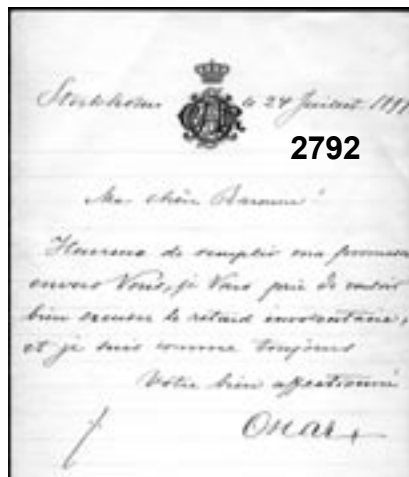 Stockholm le 24 Juillet 1897
2792
Ma chère Baronne!
Heureux de remplir ma promesse
envers Vous, je Vous prie de vouloir
bien excuser le retard involontaire,
et je suis comme toujours
Votre bien affectionné
Oscar